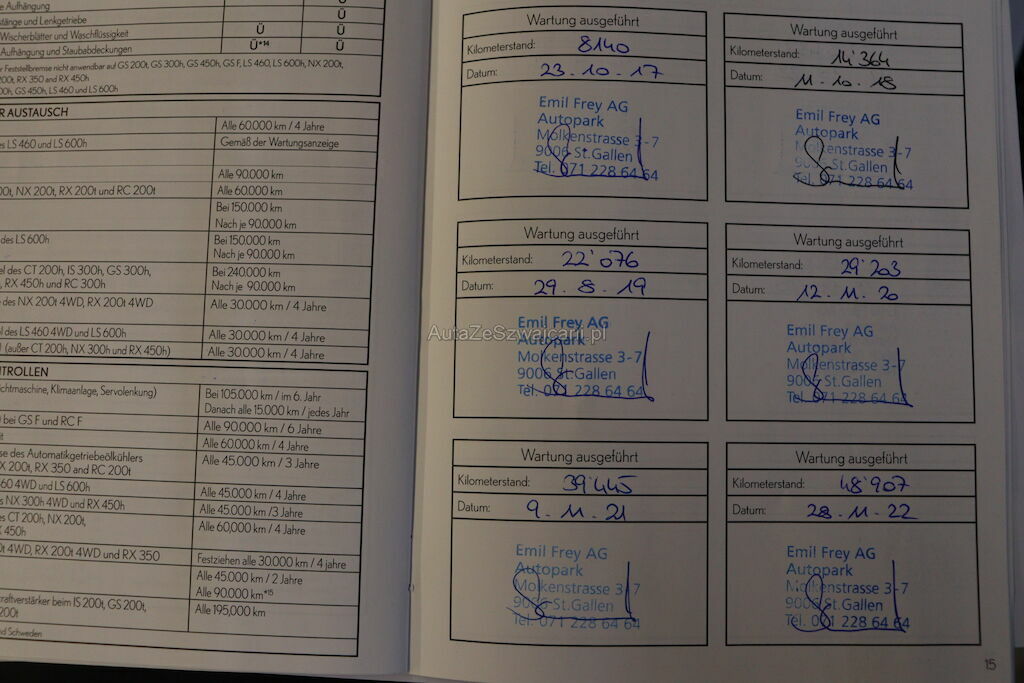 e Aufhängung Ü
stänge und Lenkgetriebe Ü
Wischerblätter und Waschflüssigkeit Ü Ü
Aufhängung und Staubabdeckungen Ü*14 Ü
r Feststellbremse nicht anwendbar auf GS 200t, GS 300h, GS 450h, GS F, LS 460, LS 600h, NX 200t,
200t, RX 350 and RX 450h
00h, GS 450h, LS 460 und LS 600h
R AUSTAUSCH
Alle 60.000 km / 4 Jahre
es LS 460 und LS 600h Gemäß der Wartungsanzeige
Alle 90.000 km
00t, NX 200t, RX 200t und RC 200t Alle 60.000 km
Bei 150.000 km
Nach je 90.000 km
des LS 600h Bei 150.000 km
Nach je 90.000 km
el des CT 200h, IS 300h, GS 300h, Bei 240.000 km
, RX 450h und RC 300h Nach je 90.000 km
e des NX 200t 4WD, RX 200t 4WD Alle 30.000 km / 4 Jahre
l des LS 460 4WD und LS 600h Alle 30.000 km / 4 Jahre
l (außer CT 200h, NX 300h und RX 450h) Alle 30.000 km / 4 Jahre
NTROLLEN
ichtmaschine, Klimaanlage, Servolenkung) Bei 105.000 km / im 6. Jahr
Danach alle 15.000 km / jedes Jahr
) bei GS F und RC F Alle 90.000 km / 6 Jahre
it Alle 60.000 km / 4 Jahre
se des Automatikgetriebeölkühlers Alle 45.000 km / 3 Jahre
X 200t, RX 350 and RC 200t
460 4WD und LS 600h Alle 45.000 km / 4 Jahre
s NX 300h 4WD und RX 450h Alle 45.000 km /3 Jahre
es CT 200h, NX 200t, Alle 60,000 km / 4 Jahre
X 450h
0t 4WD, RX 200t 4WD und RX 350 Festziehen alle 30.000 km / 4 jahre
Alle 45.000 km / 2 Jahre
Alle 90.000 km*15
raftverstärker beim IS 200t, GS 200t, Alle 195,000 km
200t
nd Schweden
Wartung ausgeführt
Kilometerstand: 8140
Datum: 23.10.17
Emil Frey AG
Autopark
Molkenstrasse 3-7
9006 St.Gallen
Tel. 071 228 64 64
Wartung ausgeführt
Kilometerstand: 14'364
Datum: 11.10.18
Emil Frey AG
Autopark
Molkenstrasse 3-7
9006 St.Gallen
Tel. 071 228 64 64
Wartung ausgeführt
Kilometerstand: 22'076
Datum: 29.8.19
Emil Frey AG
Autopark
Molkenstrasse 3-7
9006 St.Gallen
Tel. 071 228 64 64
Wartung ausgeführt
Kilometerstand: 29'203
Datum: 12.11.20
Emil Frey AG
Autopark
Molkenstrasse 3-7
9006 St.Gallen
Tel. 071 228 64 64
AutaZeSzwajcarii.pl
Wartung ausgeführt
Kilometerstand: 39'445
Datum: 9.11.21
Emil Frey AG
Autopark
Molkenstrasse 3-7
9006 St.Gallen
Tel. 071 228 64 64
Wartung ausgeführt
Kilometerstand: 48'907
Datum: 28.11.22
Emil Frey AG
Autopark
Molkenstrasse 3-7
9006 St.Gallen
Tel. 071 228 64 64
15